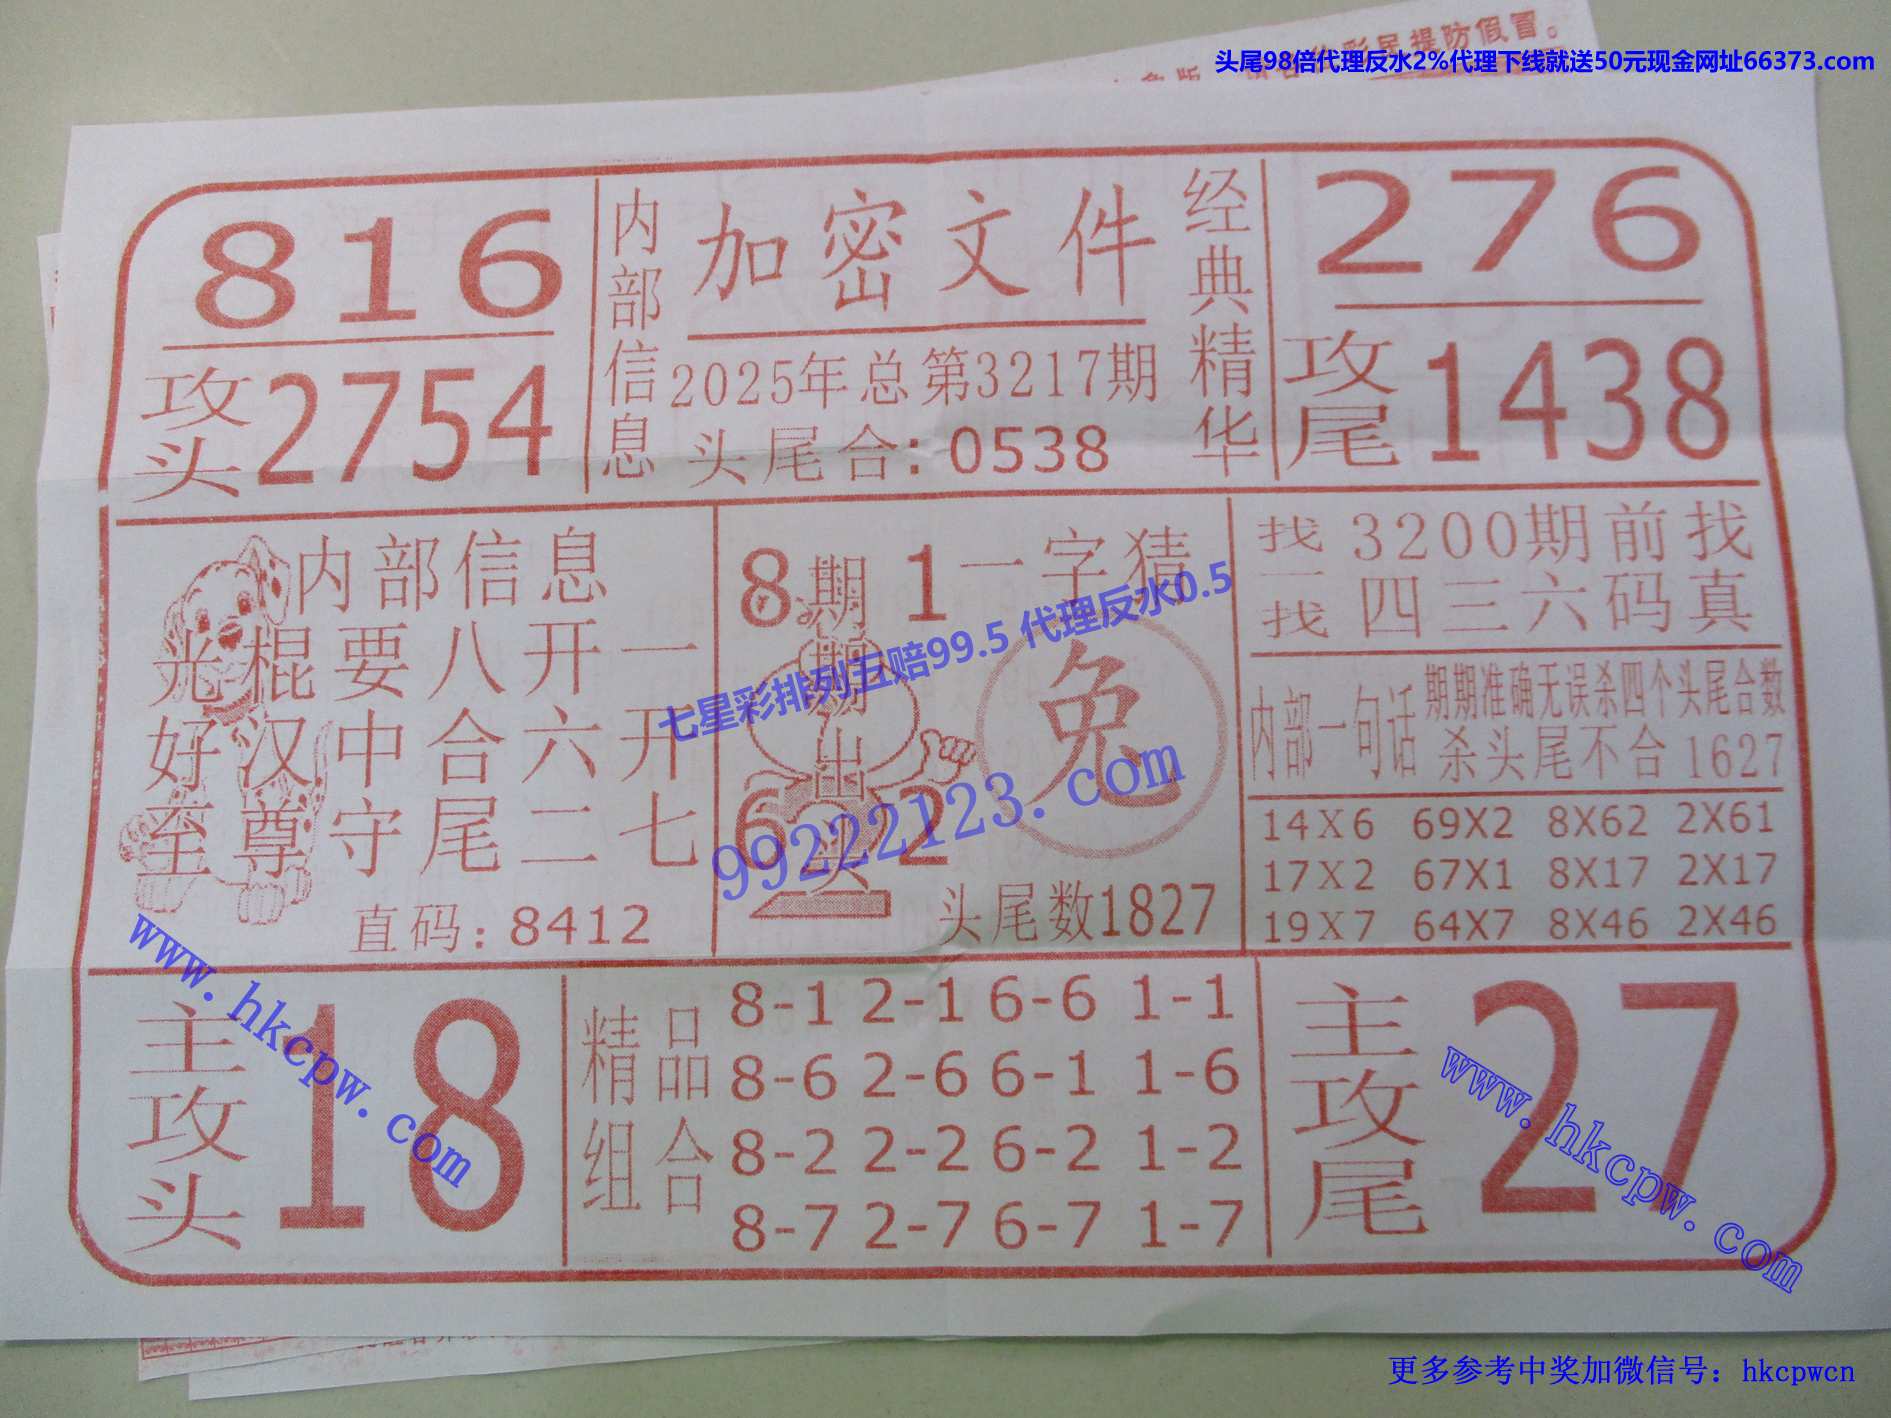 彩民提防假冒。
头尾98倍代理反水2%代理下线就送50元现金网址66373.com
816
攻头2754
内部信息
加密文件
2025年总第3217期
头尾合:0538
经典精华
276
攻尾1438
内部信息
光棍要八开一
好汉中合六开
至尊守尾二七
直码:8412
8 1
期期出
6 2
一字猜
兔
头尾数1827
七星彩排列五赔99.5 代理反水0.5
99222123.com
找一找
3200期前找
四三六码真
内部一句话
期期准确无误杀四个头尾合数
杀头尾不合1627
14X6 69X2 8X62 2X61
17X2 67X1 8X17 2X17
19X7 64X7 8X46 2X46
主攻头
18
www.hkcpw.com
精品组合
8-1 2-1 6-6 1-1
8-6 2-6 6-1 1-6
8-2 2-2 6-2 1-2
8-7 2-7 6-7 1-7
主攻尾
27
www.hkcpw.com
更多参考中奖加微信号：hkcpwcn